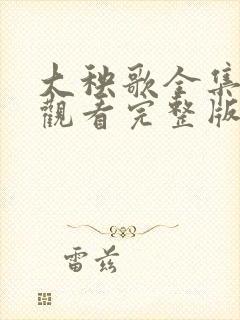 大秧歌全集
觀看完整版
雷茲